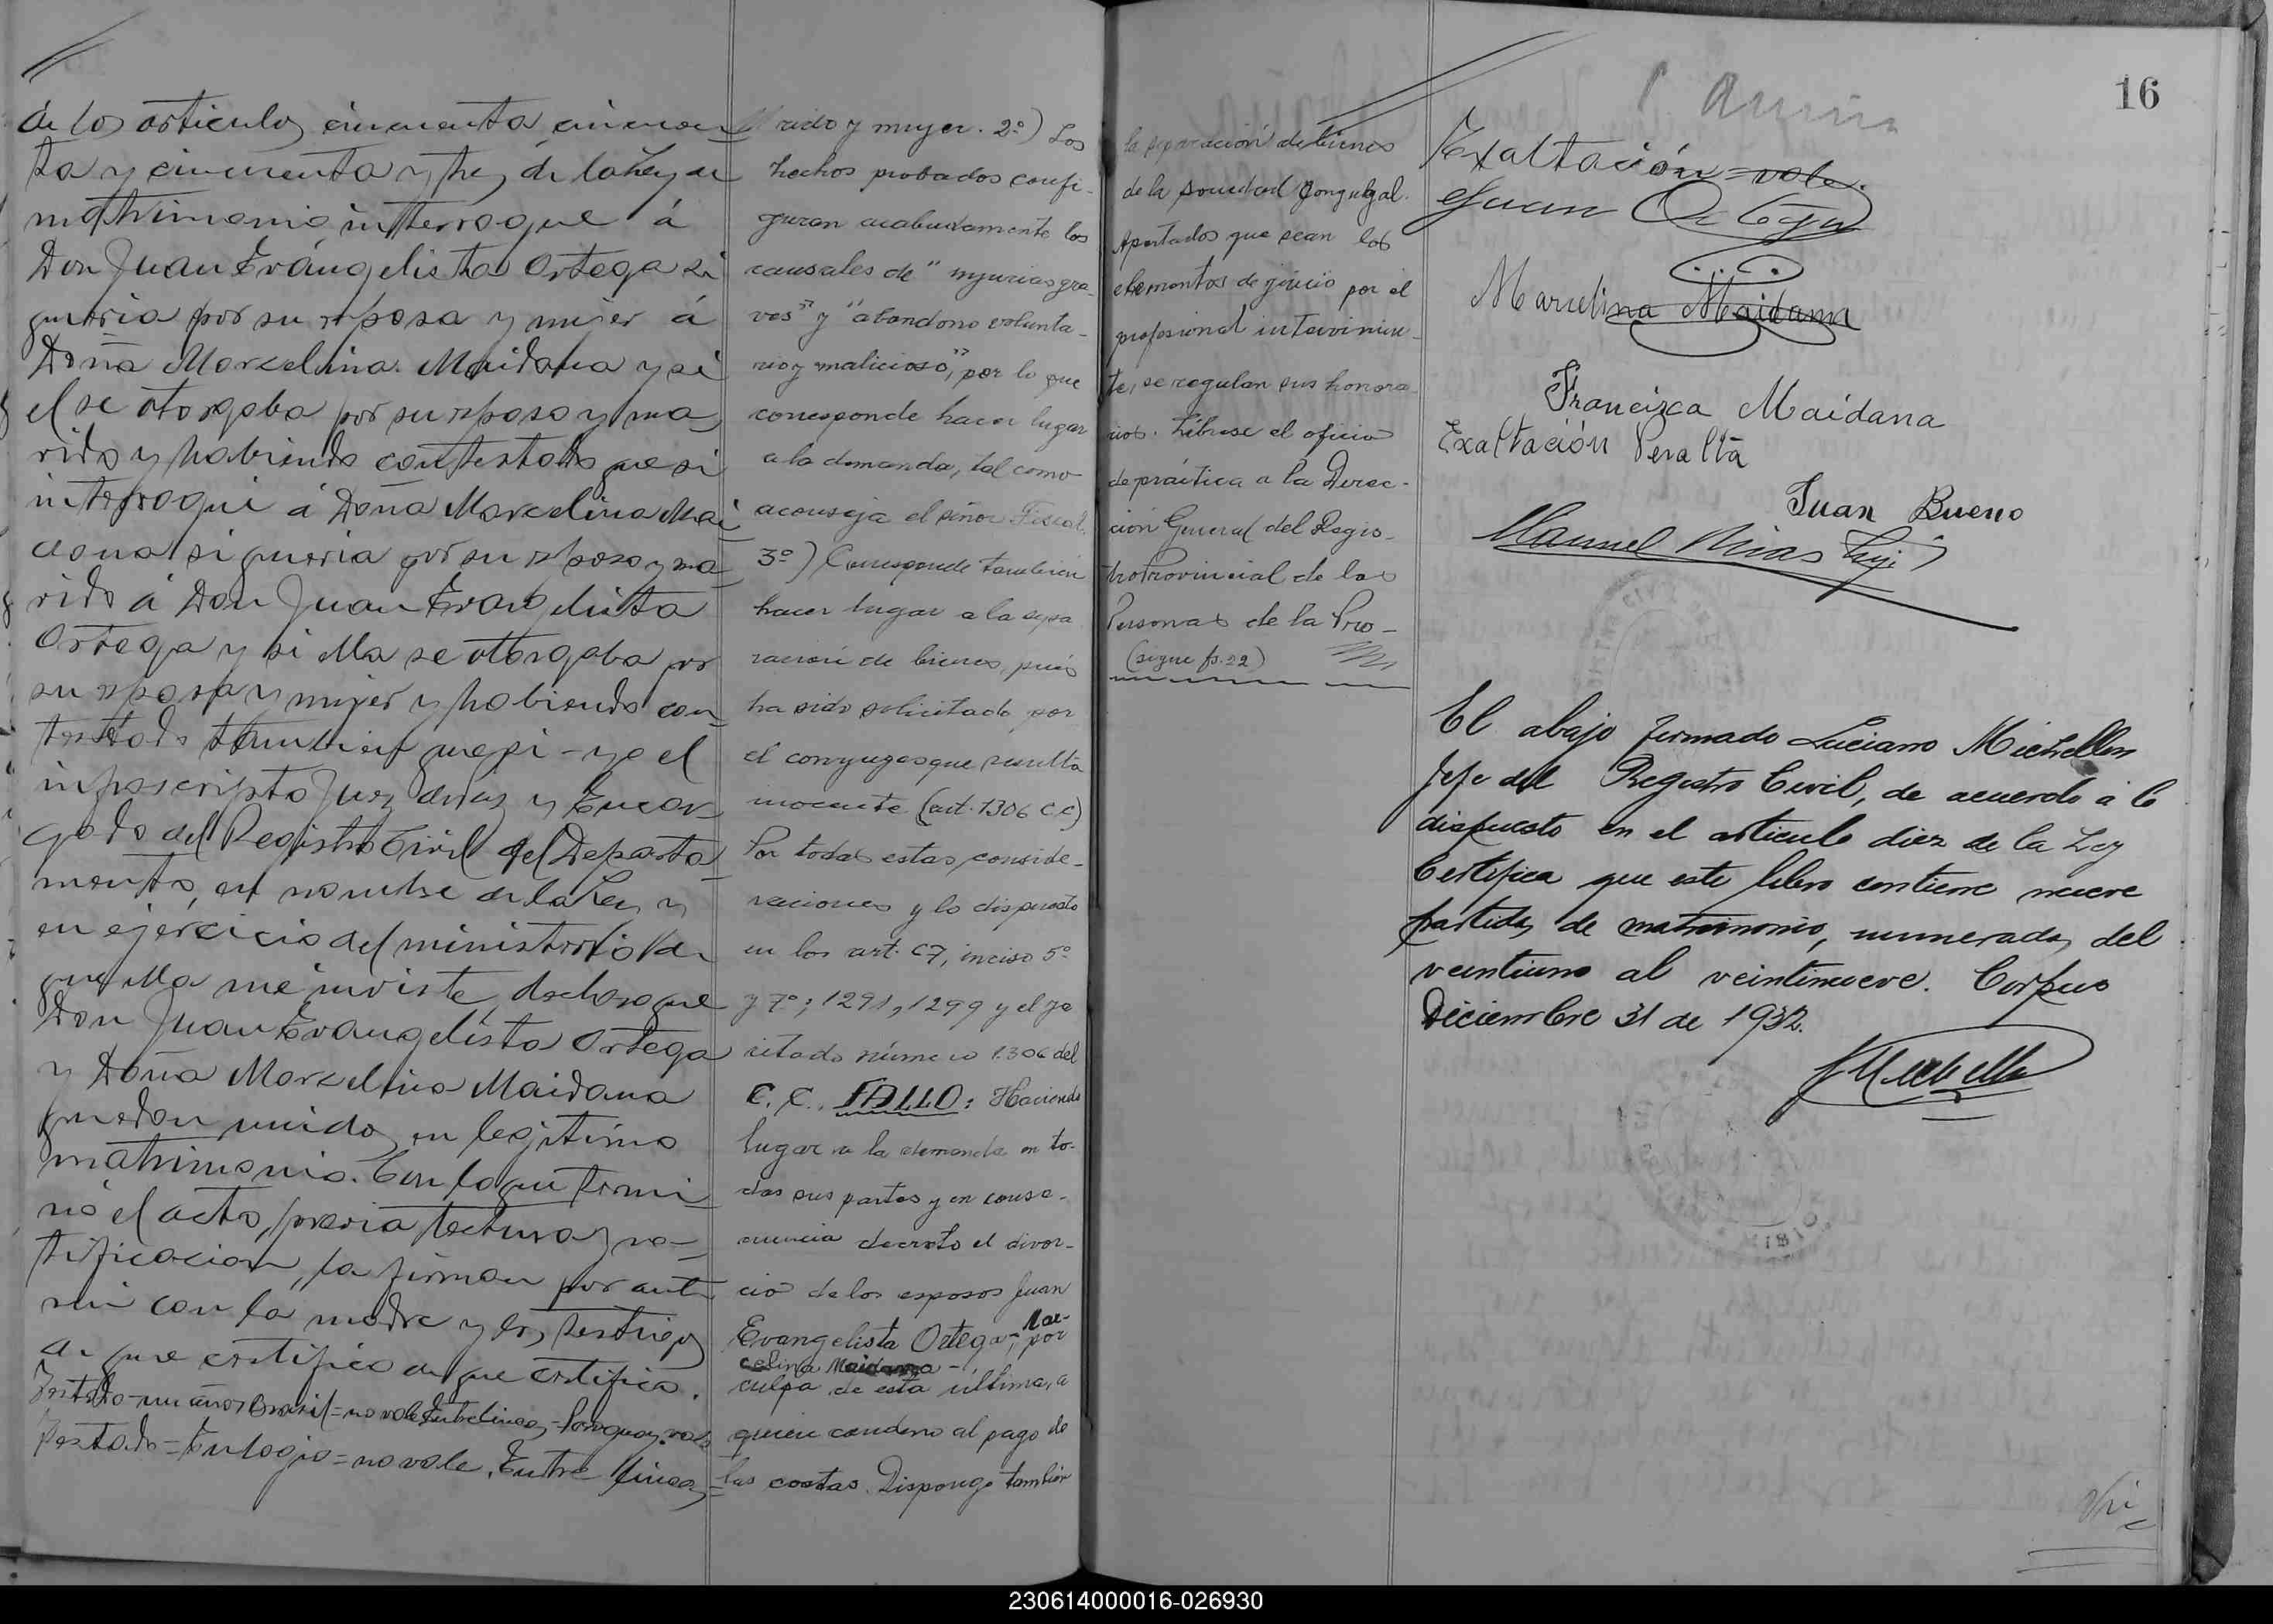 de los articulos cincuenta, cincuen
ta y cincuenta y tres de la Ley de
matrimonio interrogué á
Don Juan Evangelista Ortega si
queria por su esposa y mujer á
Doña Marcelina Maidana y si
el se otorgaba por su esposo y ma
rido y habiendo contestado que si
interrogué á Doña Marcelina Mai
dana si queria por su esposo y ma
rido á Don Juan Evangelista
Ortega y si ella se otorgaba por
su esposa y mujer y habiendo con
testado tambien que si - yo el
infrascripto Juez de Paz y Encar
gado del Registro Civil del Departa
mento, en nombre de la Ley y
en ejercicio del ministerio de
que ella me inviste, declaro que
Don Juan Evangelista Ortega
y Doña Marcelina Maidana
quedan unidos en legitimo
matrimonio. Con lo que termi
nó el acto, previa lectura y ra-
tificacion, la firman por ante
mi con la madre y los testigos
de que certifico de que certifico.
Testado = un años Brasil = no vale Entrelineas = Paraguay. vale
Testado = Eulogio = no vale. Entre lineas =
rido y mujer. 2º) Los
hechos probados confi-
guran acabadamente las
causales de "injurias gra-
ves" y "abandono volunta-
rio y malicioso", por lo que
corresponde hacer lugar
a la demanda, tal como
aconseja el señor Fiscal.
3º) Corresponde tambien
hacer lugar a la sepa
racion de bienes, pués
ha sido solicitada por
el conyuge que resulta
inocente (art. 1306 C.C)
Por todas estas conside-
raciones y lo dispuesto
en los art. 67, inciso 5º
y 7º; 1291, 1299 y el ya
citado número 1306 del
C. C., FALLO: Haciendo
lugar a la demanda en to-
das sus partes y en conse-
cuencia decreto el divor-
cio de los esposos Juan
Evangelista Ortega-, Mar-
celina Maidana - por
culpa de esta última, a
quien condeno al pago de
las costas. Dispongo también
la separación de bienes
de la sociedad conyugal.
Aportados que sean los
elementos de juicio por el
profesional intervinien-
te, se regulan sus honora
rios. Líbrese el oficio
de práctica a la Direc-
ción General del Regis-
tro Provincial de las
Personas de la Pro-
(sigue fs. 22)
16
Exaltación = vale.
Juan Ortega
Marcelina Maidana
Francisca Maidana
Exaltación Peralta
Juan Bueno
Manuel
El abajo firmado Luciano Michellon
Jefe del Registro Civil, de acuerdo á lo
dispuesto en el articulo diez de la Ley
Certifica que este libro contiene nueve
partidas de matrimonio, numeradas del
veintiuno al veintinueve. Corpus
Diciembre 31 de 1932.
230614000016-026930